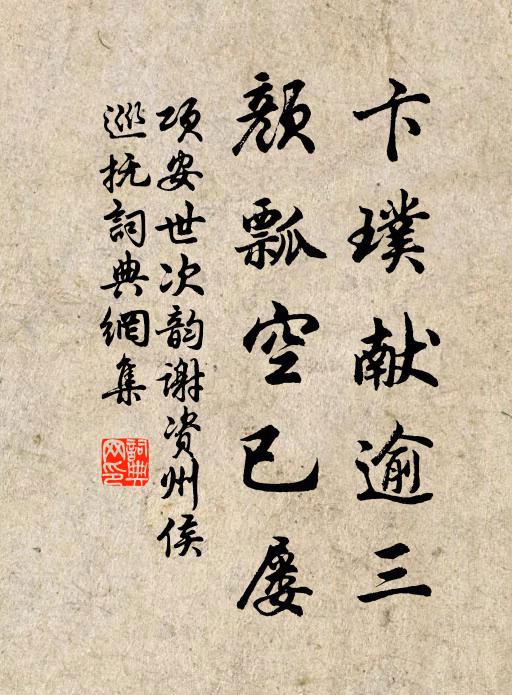 卞璞献逾三
颜瓢空已屡
项安世次韵谢资州侯
巡抚詞典網集
詞典
网印